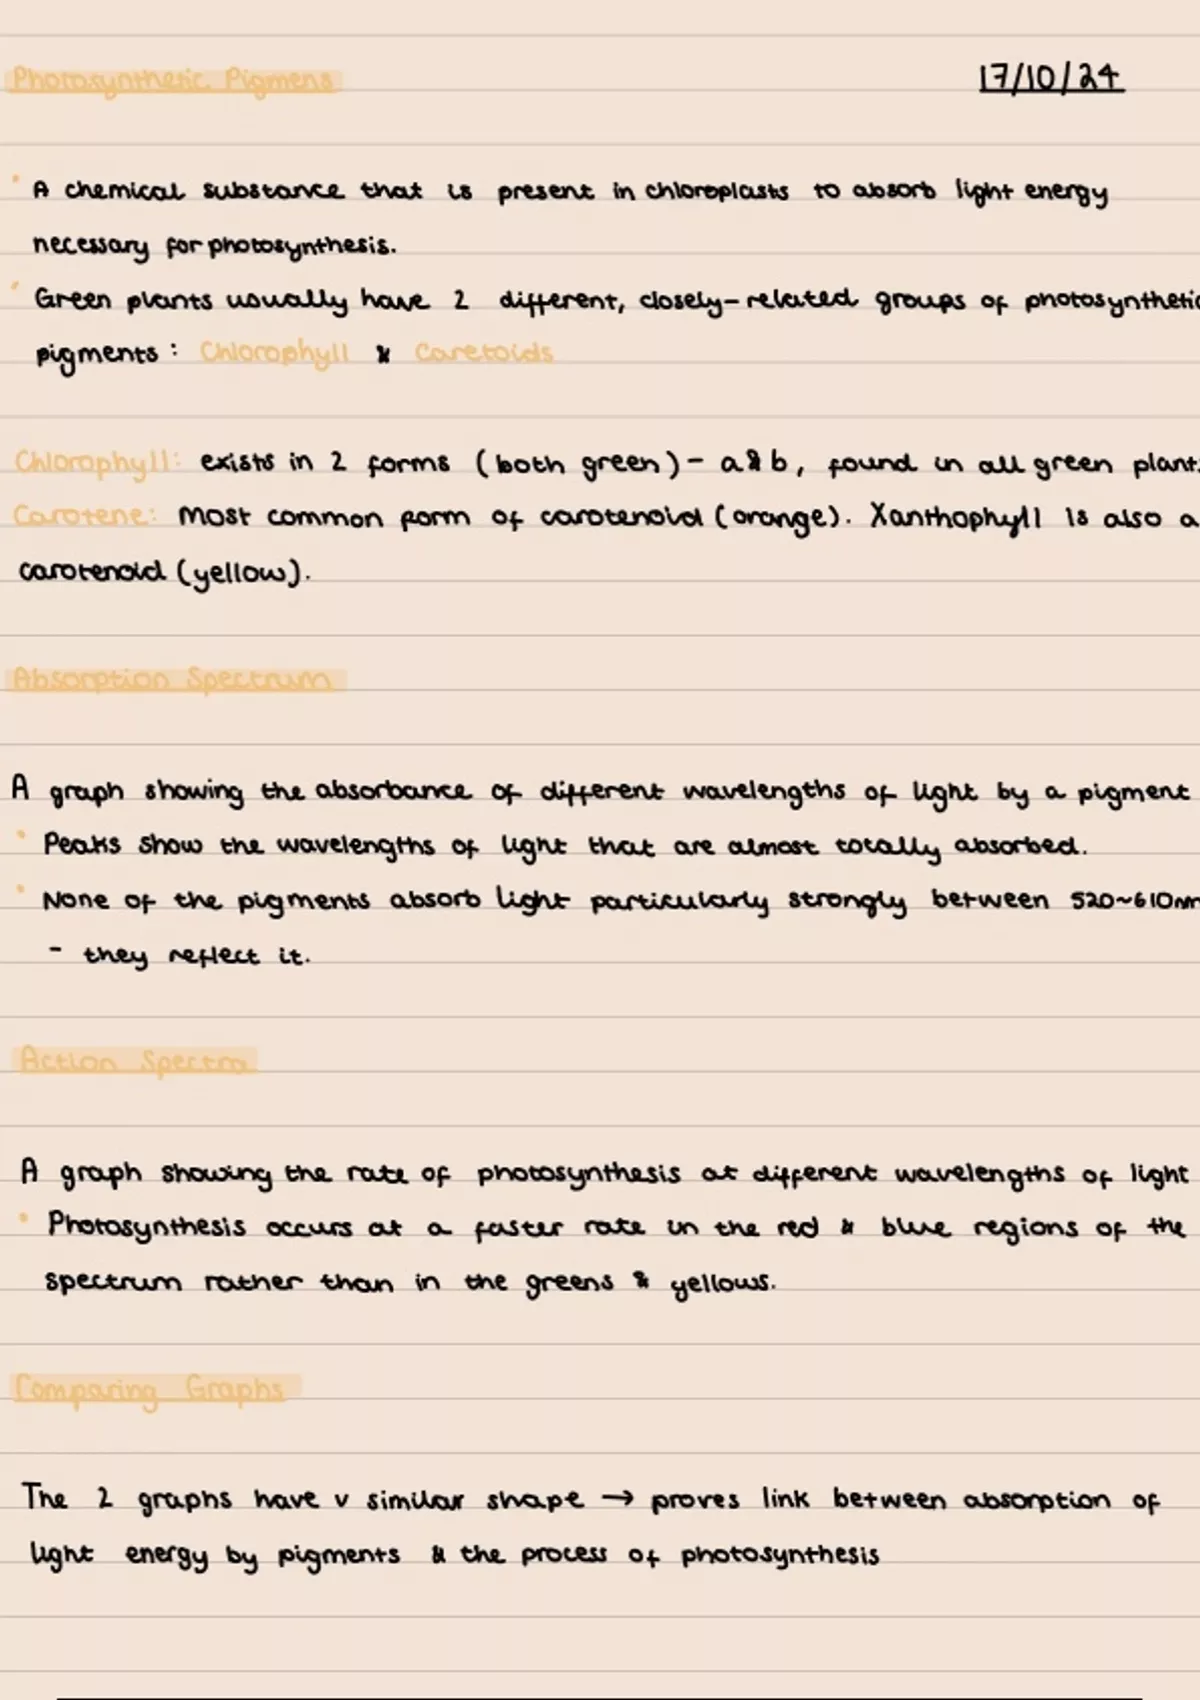 Photosynthetic Pigmens
17/10/24
A chemical substance that is present in chloroplasts to absorb light energy
necessary for photosynthesis.
Green plants usually have 2 different, closely-related groups of photosynthetic
pigments: Chlorophyll & Caretoids
Chlorophyll: exists in 2 forms (both green) - a & b, found in all green plants
Carotene: most common form of carotenoid (orange). Xanthophyll is also a
carotenoid (yellow).
Absorption Spectrum
A graph showing the absorbance of different wavelengths of light by a pigment
Peaks show the wavelengths of light that are almost totally absorbed.
None of the pigments absorb light particularly strongly between 520~610nm
- they reflect it.
Action Spectra
A graph showing the rate of photosynthesis at different wavelengths of light
Photosynthesis occurs at a faster rate in the red & blue regions of the
spectrum rather than in the greens & yellows.
Comparing Graphs
The 2 graphs have v similar shape → proves link between absorption of
light energy by pigments & the process of photosynthesis